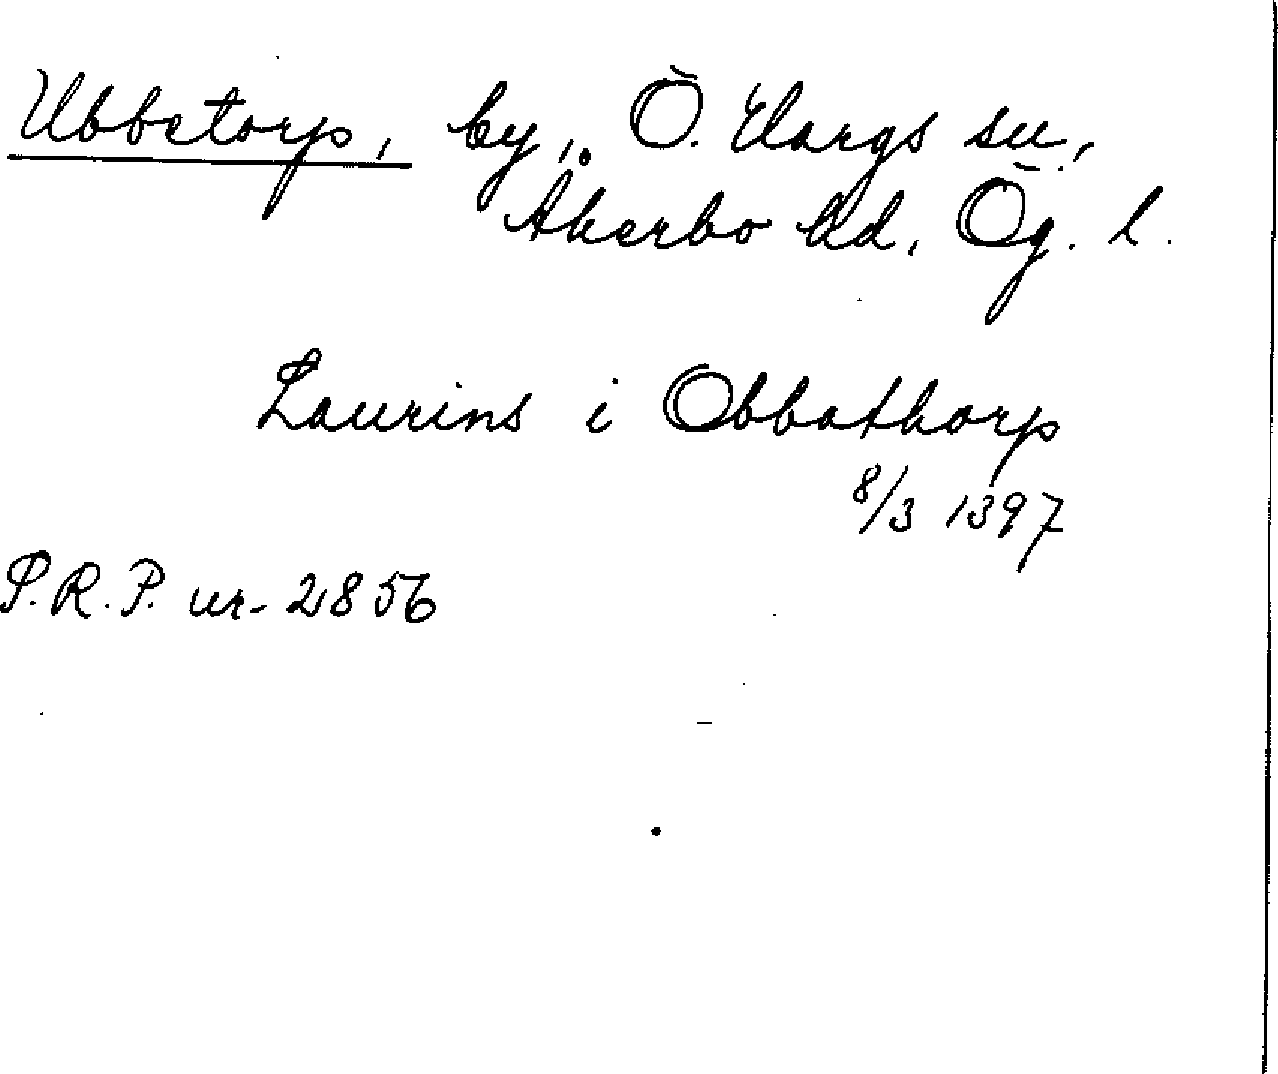 Ubbetorp, by, Ö. Hargs sn,
Åkerbo hd, Ög. l.
Laurins i Obbathorp
8/3 1397
S.R.P. nr. 2856